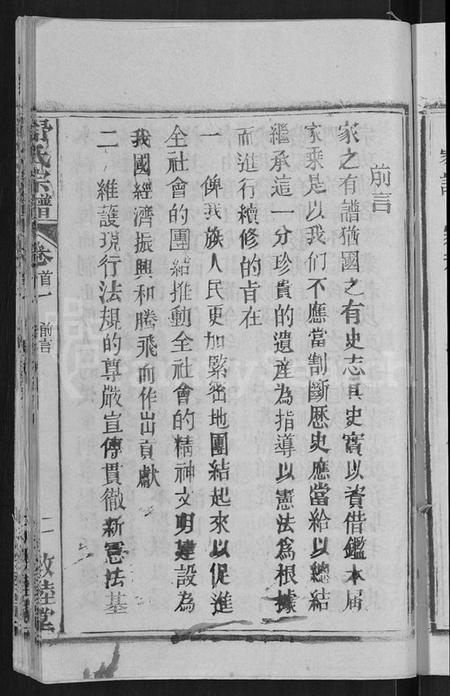 前言
家之有譜猶國之有史志具史實以資借鑑本届
家乘是以我们不應當割斷歷史應當給以總結
継承這一分珍貴的遺産為指導以憲法為根據
而進行續修的旨在
一 俾我族人民更加緊密地團結起來以促進
全社會的团結推動全社會的精神文明建設為
我國經濟振興和騰飛而作出貢獻
二 維護現行法規的尊嚴宣傳貫徹新憲法基
氏宗譜
卷首一
前言
一
敦睦堂